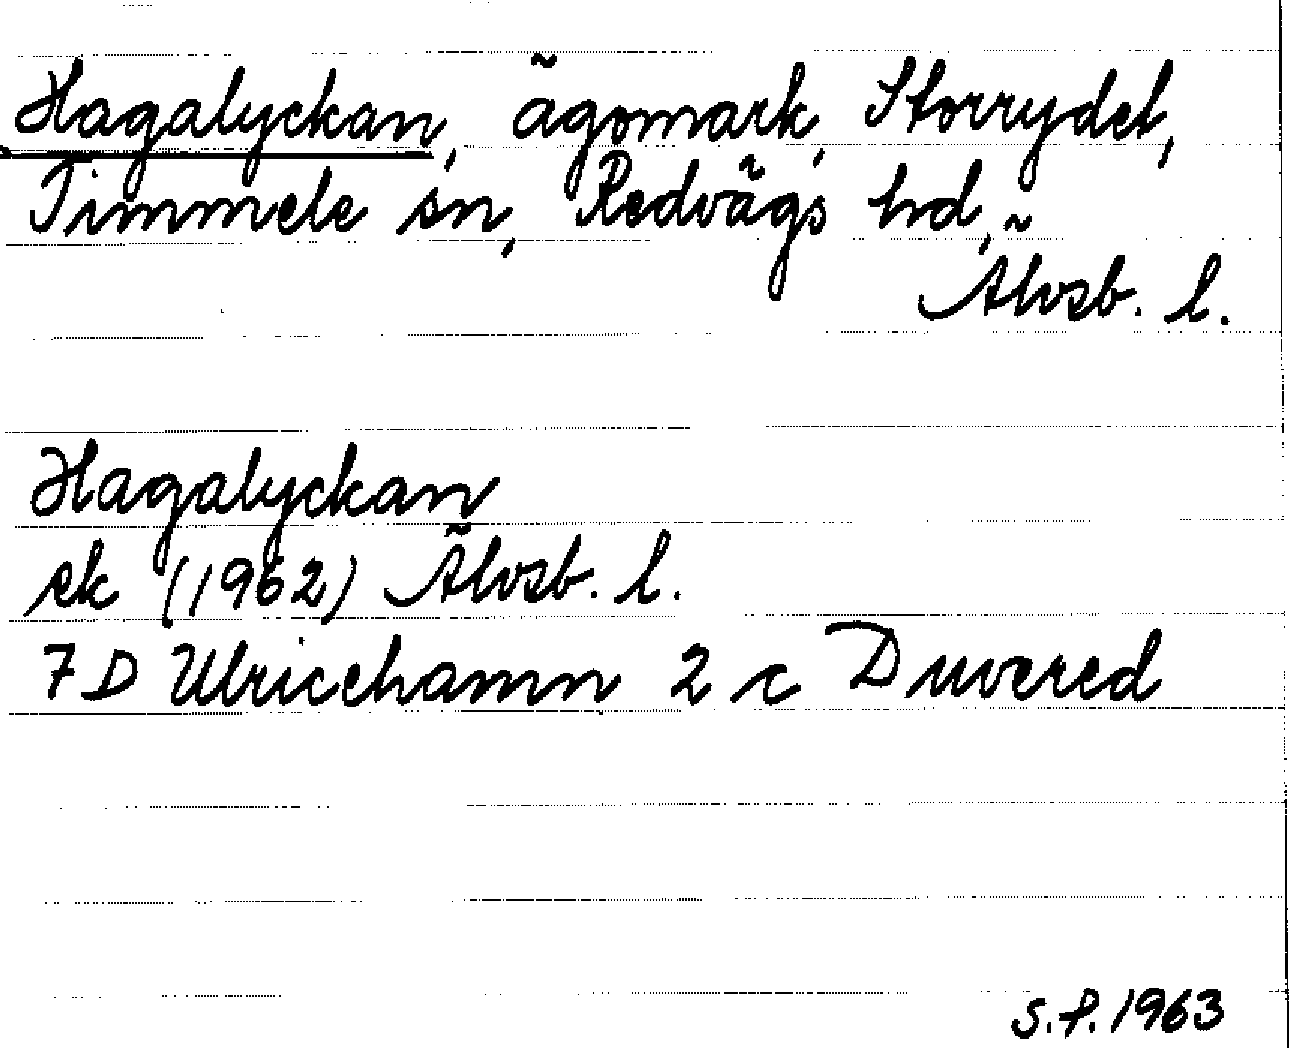 Hagalyckan, ägomark, Storrydet,
Timmele sn, Redvägs hd,
Älvsb. l.
Hagalyckan
ek (1962) Älvsb. l.
7D Ulricehamn 2 c Duvered
S.P. 1963